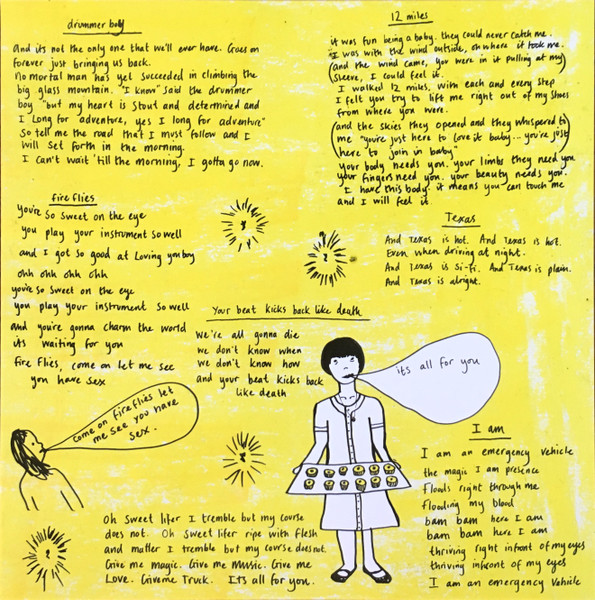 drummer boy
and its not the only one that we'll ever have. Goes on
forever just bringing us back.
No mortal man has yet succeeded in climbing the
big glass mountain. "I know" said the drummer
boy "but my heart is stout and determined and
I Long for adventure, yes I long for adventure"
So tell me the road that I must follow and I
will set forth in the morning.
I can't wait 'till the morning, I gotta go now.
12 miles
it was fun being a baby. they could never catch me.
"I was with the wind outside, oh where it took me.
(and the wind came, you were in it pulling at my
sleeve, I could feel it.)
I walked 12 miles, with each and every step
I felt you try to lift me right out of my shoes
from where you were.
(and the skies they opened and they whispered to
me "you're just here to love it baby... you're just
here to join in baby")
your body needs you. your limbs they need you
your fingers need you. your beauty needs you.
I have this body. it means you can touch me
and I will feel it.
fire flies
you're so sweet on the eye
you play your instrument so well
and I got so good at Loving you boy
ohh ohh ohh ohh
you're so sweet on the eye
you play your instrument so well
and you're gonna charm the world
its waiting for you
fire flies, come on let me see
you have sex
Texas
And Texas is hot. And Texas is hot.
Even when driving at night.
And Texas is Si-fi. And Texas is plain.
And Texas is alright.
Your beat kicks back like death
we're all gonna die
we don't know when
we don't know how
and your beat kicks back
like death
its all for you
come on fireflies let
me see you have
sex.
I am
I am an emergency vehicle
the magic I am presence
floods right through me
flooding my blood
bam bam here I am
bam bam here I am
thriving right infront of my eyes
thriving infront of my eyes
I am an emergency vehicle
Oh sweet lifer I tremble but my course
does not. Oh sweet lifer ripe with flesh
and matter I tremble but my course does not.
Give me magic. Give me Music. Give me
Love. Give me Truck. It's all for you.